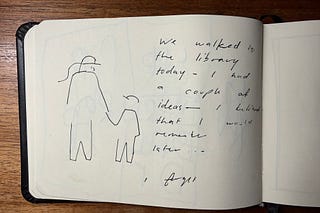 We walked to
the library
today – I had
a couple of
ideas – I believed
that I would
remember
later...
I forgot